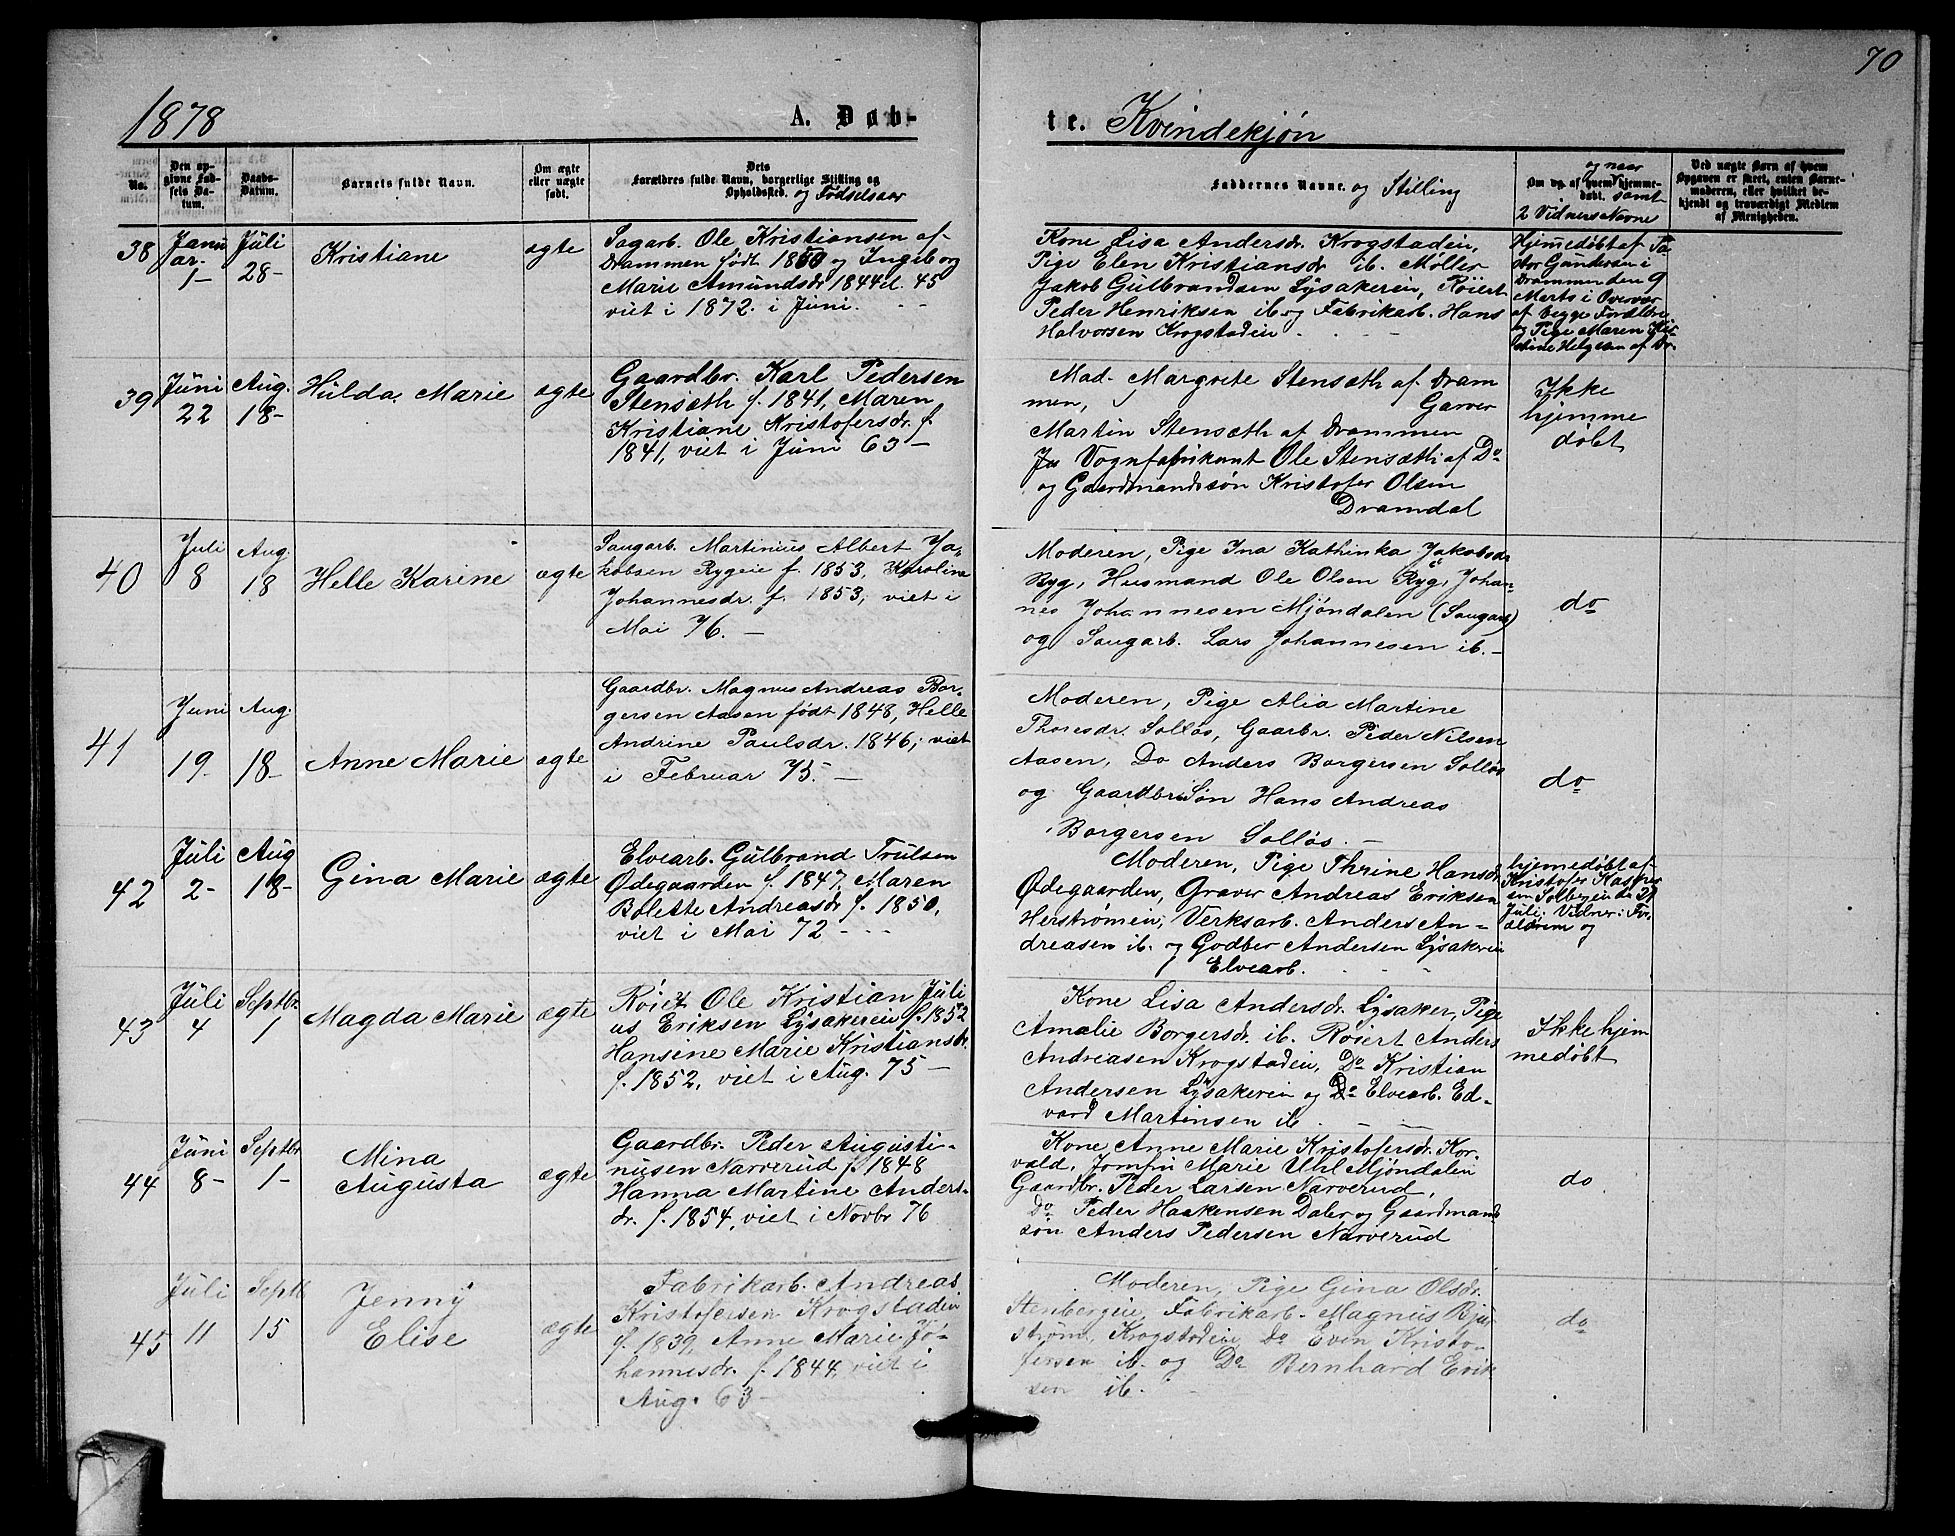 70
1878
A. Døb-
te. Kvindekjøn
No.
Den op-
givne Fød-
sels Da-
tum.
Daabs-
Datum.
Barnets fulde Navn.
Om ægte
eller uægte
født.
Dets
Forældres fulde Navn, borgerlige Stilling og
Opholdssted. og Fødselsaar
Faddernes Navne. og Stilling
og naar
Om og af hvem hjemme-
døbt. samt
2 Vidners Navne
Ved uægte Børn af hvem
Opgaven er skeet, enten Barne-
moderen, eller hvilket be-
kjendt og troværdigt Medlem
af Menigheden.
38
Janu
ar.
1-
Juli
28-
Kristiane
ægte
Sagarb. Ole Kristiansen af
Drammen født 1850 og Ingeborg
Marie Amundsdr 1844 d. 45
viet i 1872. i Juni.
Kone Lisa Andersdr. Krogstadein,
Pige Elen Kristiansdr ib. Møller
Jakob Gulbrandsen Lysakerein, Røiert
Peder Henriksen ib. og Fabrikarb. Hans
Halvorsen Krogstadein
Hjemmedøbt af Pa-
stor Gundersen i
Drammen den 9
Marts i Overvær
af begge Forældre
og Pige Maren Kri-
stine Helgesen af Dr.
39
Juni
22
Aug.
18-
Hulda Marie
ægte
Gaardbr. Karl Pedersen
Stensæth f. 1841, Maren
Kristiane Kristofersdr. f.
1841, viet i Juni 63-
Mad. Margrete Stensæth af Dram
men, Garver
Martin Stensæth af Drammen
Vognfabrikant Ole Stensæth af Do
og Gaardmandssøn Kristofer Olsen
Dramdal
Ikke
hjemme
døbt
40
Juli
8
Aug.
18
Helle Karine
ægte
Saugarb. Martinius Albert Ja-
kobsen Rygeie f. 1853, Karoline
Johannesdr. f. 1853, viet i
Mai 76.-
Moderen, Pige Ina Kathinka Jakobsdr
Ryg, Husmand Ole Olsen Ryg, Johan-
nes Johannesen Mjøndalen (Saugarb)
og Saugarb. Lars Johannesen ib.-
do
41
Juni
19
Aug.
18-
Anne Marie
ægte
Gaardbr. Magnus Andreas Bor-
gersen Aasen født 1848, Helle
Andrine Paulsdr. 1846; viet
i Februar 75.-
Moderen, Pige Alia Martine
Thoresdr. Solløs, Gaarbr. Peder Nilsen
Aasen, Do Anders Borgersen Solløs
og Gaardbr. Søn Hans Andreas
Borgersen Solløs.-
do
42
Juli
2-
Aug
18-
Gina Marie
ægte
Elvearb. Gulbrand Trulsen
Ødegaarden f. 1847, Maren
Bolette Andreasdr f. 1850,
viet i Mai 72-
Moderen, Pige Thrine Hansdr.
Ødegaarden, Graver Andreas Eriksen
Herstrømen, Verksarb. Anders An-
dreasen ib. og Godber Andersen Lysakerein
Elvearb.
hjemmedøbt af
Kristofer
den 21
Juli; Vidner: For
ældrene og
43
Juli
4
Septbr.
1
Magda Marie
ægte
Røiert Ole Kristian Juli
us Eriksen Lysakerein f. 1852
Hansine Marie Kristiansdr.
f. 1852, viet i Aug. 75-
Kone Lisa Andersdr. Lysaker, Pige
Amalie Borgersdr. ib. Røiert Anders
Andreasen Krogstadein, Do Kristian
Andersen Lysakerein og Do Elvearb. Ed-
vard Martinsen ib.
Ikke hjem
medøbt
44
Juni
8-
Septbr
1-
Mina
Augusta
ægte
Gaardbr. Peder Augusti-
nusen Narverud f. 1848
Hanna Martine Anders-
dr. f. 1854, viet i Novbr 76
Kone Anne Marie Kristofersdr. Kor-
vald, Jomfru Marie Uhl Mjøndalen
Gaardbr. Peder Larsen Narverud,
Do Peder Haakensen Daler og Gaardmand
søn Anders Pedersen Narverud
do
45
Juli
11
Septb
15
Jenny
Elise
ægte
Fabrikarb. Andreas
Kristofersen Krogstadein
f. 1839, Anne Marie Jo-
hannesdr. f. 1844, viet i
Aug. 63-
Moderen, Pige Gina Olsdr.
Stenbergeie, Fabrikarb. Magnus Bjur
strøm, Krogstadein, Do Even Kristo-
fersen ib. og Do Bernhard Erik
sen ib.
do